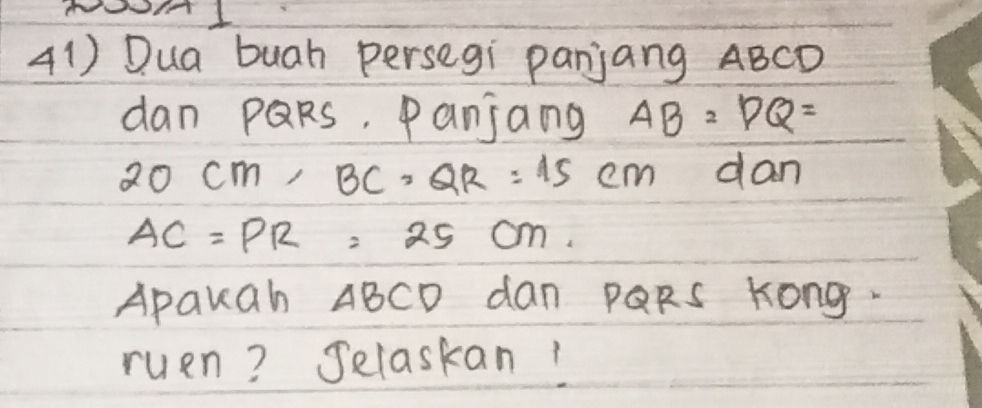 41) Dua buah persegi panjang ABCD
dan PQRS. Panjang AB = PQ =
20 cm, BC = QR = 15 cm dan
AC = PR = 25 cm.
Apakah ABCD dan PQRS kong-
ruen? Jelaskan!